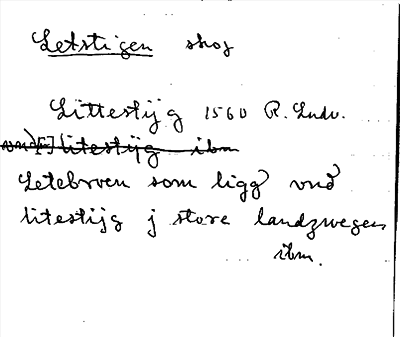 Letstigen skog
Littestijg 1560 R. Ludv.
vnd [i] litestijg ibm
Letebroen som ligg vnd
litestijg j store landzwegen
ibm.